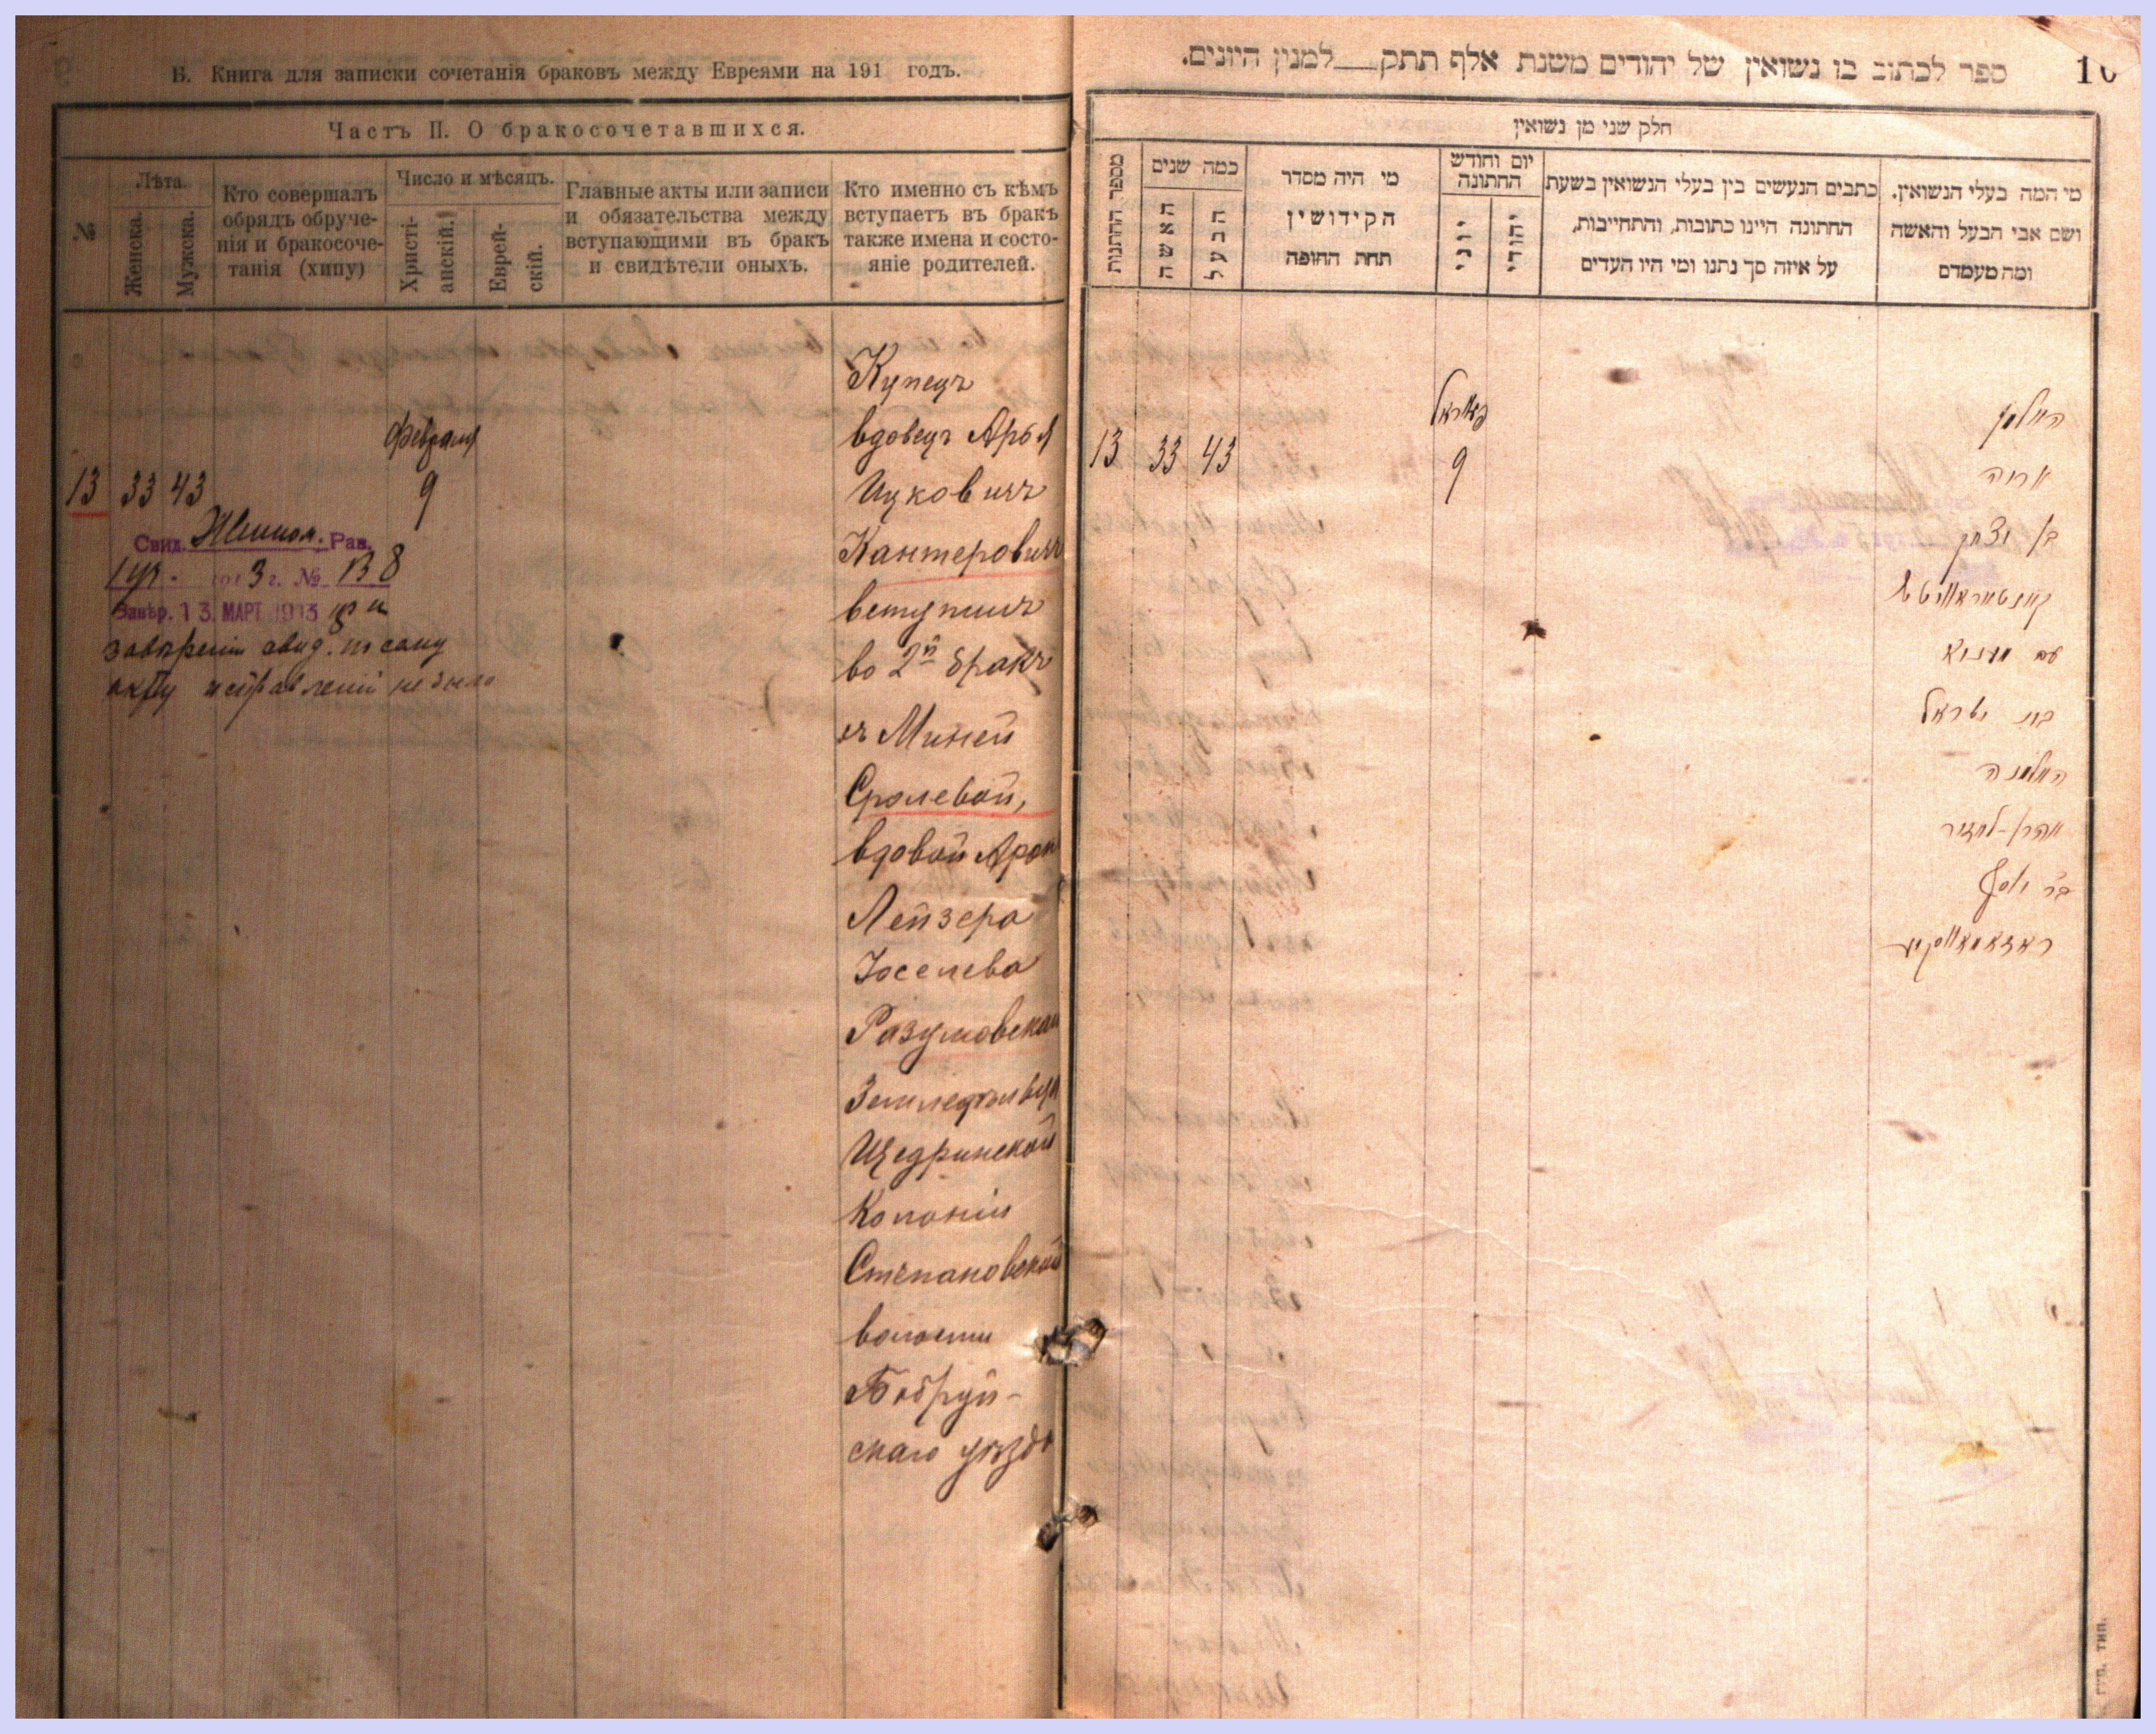 Б. Книга для записки сочетанія браковъ между Евреями на 191 годъ.
Часть II. О бракосочетавшихся.
№
Лѣта.
Женска.
Мужска.
Кто совершалъ
обрядъ обруче-
нія и бракосоче-
танія (хипу)
Число и мѣсяцъ.
Христі-
анскій.
Еврей-
скій.
Главные акты или записи
и обязательства между
вступающими въ бракъ
и свидѣтели оныхъ.
Кто именно съ кѣмъ
вступаетъ въ бракъ
также имена и состо-
яніе родителей.
Февраля
13 33 43 9
Свид. Рав.
1913 г. № 138
Завѣр. 13. МАРТ 1913 при
завѣреніи свид. по сему
акту исправленій не было
Купецъ
вдовецъ Арья
Ицковичъ
Канторовичъ
вступилъ
во 2й бракъ
съ Миней
Сролевой,
вдовой Арон
Лейзера
Іоселева
Разумовская
Земледѣльца
Щедринской
Колоніи
Степановской
волости
Бобруй-
скаго уѣзда
ספר לכתוב בו נשואין של יהודים משנת אלף תתק__למנין היונים.
10
חלק שני מן נשואין
מספר החתונות
כמה שנים
האשה
הבעל
מי היה מסדר
הקידושין
תחת החופה
יום וחודש
החתונה
יוני
יהודי
כתבים הנעשים בין בעלי הנשואין בשעת
החתונה היינו כתובות, והתחייבות,
על איזה סך נתנו ומי היו העדים
מי המה בעלי הנשואין.
ושם אבי הבעל והאשה
ומה מעמדם
13 33 43
פאוראל
9
האלמן
אריה
בן יצחק
קאנטאראוויטש
עם מיניא
בת ישראל
האלמנה
אהרן-לייזר
בר יוסף
ראזאמאווסקיע
губ. тип.